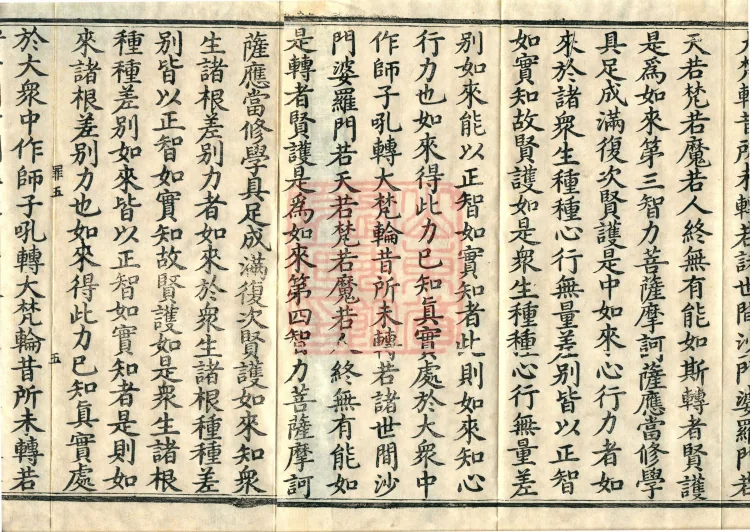 梵轉昔所未轉若諸世間沙門婆羅門若
天若梵若魔若人終無有能如斯轉者賢護
是爲如來第三智力菩薩摩訶薩應當修學
具足成滿復次賢護是中如來心行力者如
來於諸衆生種種心行無量差別皆以正智
如實知故賢護如是衆生種種心行無量差
別如來能以正智如實知者此則如來知心
行力也如來得此力已知眞實處於大衆中
作師子吼轉大梵輪昔所未轉若諸世間沙
門婆羅門若天若梵若魔若人終無有能如
是轉者賢護是爲如來第四智力菩薩摩訶
薩應當修學具足成滿復次賢護如來知衆
生諸根差別力者如來於衆生諸根種種差
別皆以正智如實知故賢護如是衆生諸根
種種差別如來皆以正智如實知者是則如
來諸根差別力也如來得此力已知眞實處
罪五
五
於大衆中作師子吼轉大梵輪昔所未轉若